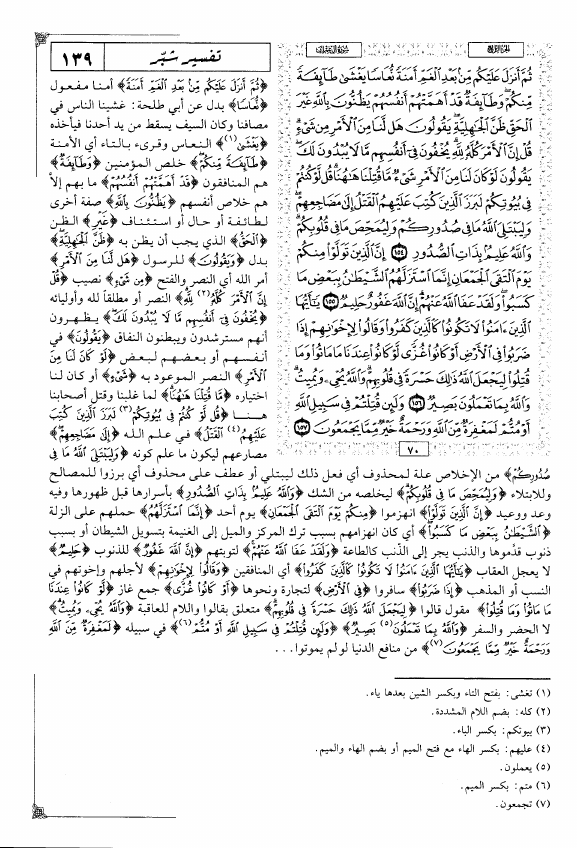 تفسير شبّر
١٣٩
سورة آل عمران
الجزء الرابع
ثُمَّ أَنزَلَ عَلَيْكُم مِّنۢ بَعْدِ ٱلْغَمِّ أَمَنَةً نُّعَاسًا يَغْشَىٰ طَآئِفَةً
مِّنكُمْ وَطَآئِفَةٌ قَدْ أَهَمَّتْهُمْ أَنفُسُهُمْ يَظُنُّونَ بِٱللَّهِ غَيْرَ
ٱلْحَقِّ ظَنَّ ٱلْجَٰهِلِيَّةِ يَقُولُونَ هَل لَّنَا مِنَ ٱلْأَمْرِ مِن شَىْءٍ
قُلْ إِنَّ ٱلْأَمْرَ كُلَّهُۥ لِلَّهِ يُخْفُونَ فِىٓ أَنفُسِهِم مَّا لَا يُبْدُونَ لَكَ
يَقُولُونَ لَوْ كَانَ لَنَا مِنَ ٱلْأَمْرِ شَىْءٌ مَّا قُتِلْنَا هَٰهُنَا قُل لَّوْ كُنتُمْ
فِى بُيُوتِكُمْ لَبَرَزَ ٱلَّذِينَ كُتِبَ عَلَيْهِمُ ٱلْقَتْلُ إِلَىٰ مَضَاجِعِهِمْ
وَلِيَبْتَلِىَ ٱللَّهُ مَا فِى صُدُورِكُمْ وَلِيُمَحِّصَ مَا فِى قُلُوبِكُمْ
وَٱللَّهُ عَلِيمٌۢ بِذَاتِ ٱلصُّدُورِ ١٥٤ إِنَّ ٱلَّذِينَ تَوَلَّوْا۟ مِنكُمْ
يَوْمَ ٱلْتَقَى ٱلْجَمْعَانِ إِنَّمَا ٱسْتَزَلَّهُمُ ٱلشَّيْطَٰنُ بِبَعْضِ مَا
كَسَبُوا۟ وَلَقَدْ عَفَا ٱللَّهُ عَنْهُمْ إِنَّ ٱللَّهَ غَفُورٌ حَلِيمٌ ١٥٥ يَٰٓأَيُّهَا
ٱلَّذِينَ ءَامَنُوا۟ لَا تَكُونُوا۟ كَٱلَّذِينَ كَفَرُوا۟ وَقَالُوا۟ لِإِخْوَٰنِهِمْ إِذَا
ضَرَبُوا۟ فِى ٱلْأَرْضِ أَوْ كَانُوا۟ غُزًّى لَّوْ كَانُوا۟ عِندَنَا مَا مَاتُوا۟ وَمَا
قُتِلُوا۟ لِيَجْعَلَ ٱللَّهُ ذَٰلِكَ حَسْرَةً فِى قُلُوبِهِمْ وَٱللَّهُ يُحْىِۦ وَيُمِيتُ
وَٱللَّهُ بِمَا تَعْمَلُونَ بَصِيرٌ ١٥٦ وَلَئِن قُتِلْتُمْ فِى سَبِيلِ ٱللَّهِ
أَوْ مُتُّمْ لَمَغْفِرَةٌ مِّنَ ٱللَّهِ وَرَحْمَةٌ خَيْرٌ مِّمَّا يَجْمَعُونَ ١٥٧
٧٠
﴿ثُمَّ أَنزَلَ عَلَيْكُم مِّنۢ بَعْدِ ٱلْغَمِّ أَمَنَةً﴾ أمنا مفعول
﴿نُّعَاسًا﴾ بدل عن أبي طلحة: غشينا الناس في
مصافنا وكان السيف يسقط من يد أحدنا فيأخذه
﴿يَغْشَىٰ(١)﴾ النعاس وقرىء بالتاء أي الأمنة
﴿طَآئِفَةً مِّنكُمْ﴾ خلص المؤمنين ﴿وَطَآئِفَةٌ﴾
هم المنافقون ﴿قَدْ أَهَمَّتْهُمْ أَنفُسُهُمْ﴾ ما بهم إلاّ
هم خلاص أنفسهم ﴿يَظُنُّونَ بِٱللَّهِ﴾ صفة أخرى
لطائفة أو حال أو استئناف ﴿غَيْرَ﴾ الظن
﴿ٱلْحَقِّ﴾ الذي يجب أن يظن به ﴿ظَنَّ ٱلْجَٰهِلِيَّةِ﴾
بدل ﴿وَيَقُولُونَ﴾ للرسول ﴿هَل لَّنَا مِنَ ٱلْأَمْرِ﴾
أمر الله أي النصر والفتح ﴿مِن شَىْءٍ﴾ نصيب ﴿قُلْ
إِنَّ ٱلْأَمْرَ كُلَّهُ(٢) لِلَّهِ﴾ النصر أو مطلقاً لله وأوليائه
﴿يُخْفُونَ فِىٓ أَنفُسِهِم مَّا لَا يُبْدُونَ لَكَ﴾ يظهرون
أنهم مسترشدون ويبطنون النفاق ﴿يَقُولُونَ﴾ في
أنفسهم أو بعضهم لبعض ﴿لَوْ كَانَ لَنَا مِنَ
ٱلْأَمْرِ﴾ النصر الموعود به ﴿شَىْءٌ﴾ أو كان لنا
اختياره ﴿مَّا قُتِلْنَا هَٰهُنَا﴾ لما غلبنا وقتل أصحابنا
هنا ﴿قُل لَّوْ كُنتُمْ فِى بُيُوتِكُمْ(٣) لَبَرَزَ ٱلَّذِينَ كُتِبَ
عَلَيْهِمُ(٤) ٱلْقَتْلُ﴾ في علم الله ﴿إِلَىٰ مَضَاجِعِهِمْ﴾
مصارعهم ليكون ما علم كونه ﴿وَلِيَبْتَلِىَ ٱللَّهُ مَا فِى
صُدُورِكُمْ﴾ من الإخلاص علة لمحذوف أي فعل ذلك ليبتلي أو عطف على محذوف أي برزوا للمصالح
وللابتلاء ﴿وَلِيُمَحِّصَ مَا فِى قُلُوبِكُمْ﴾ ليخلصه من الشك ﴿وَٱللَّهُ عَلِيمٌۢ بِذَاتِ ٱلصُّدُورِ﴾ بأسرارها قبل ظهورها وفيه
وعد ووعيد ﴿إِنَّ ٱلَّذِينَ تَوَلَّوْا۟﴾ انهزموا ﴿مِنكُمْ يَوْمَ ٱلْتَقَى ٱلْجَمْعَانِ﴾ يوم أحد ﴿إِنَّمَا ٱسْتَزَلَّهُمُ﴾ حملهم على الزلة
﴿ٱلشَّيْطَٰنُ بِبَعْضِ مَا كَسَبُوا۟﴾ أي كان انهزامهم بسبب ترك المركز والميل إلى الغنيمة بتسويل الشيطان أو بسبب
ذنوب قدّموها والذنب يجر إلى الذنب كالطاعة ﴿وَلَقَدْ عَفَا ٱللَّهُ عَنْهُمْ﴾ لتوبتهم ﴿إِنَّ ٱللَّهَ غَفُورٌ﴾ للذنوب ﴿حَلِيمٌ﴾
لا يعجل العقاب ﴿يَٰٓأَيُّهَا ٱلَّذِينَ ءَامَنُوا۟ لَا تَكُونُوا۟ كَٱلَّذِينَ كَفَرُوا۟﴾ أي المنافقين ﴿وَقَالُوا۟ لِإِخْوَٰنِهِمْ﴾ لأجلهم وإخوتهم في
النسب أو المذهب ﴿إِذَا ضَرَبُوا۟﴾ سافروا ﴿فِى ٱلْأَرْضِ﴾ لتجارة ونحوها ﴿أَوْ كَانُوا۟ غُزًّى﴾ جمع غاز ﴿لَّوْ كَانُوا۟ عِندَنَا
مَا مَاتُوا۟ وَمَا قُتِلُوا۟﴾ مقول قالوا ﴿لِيَجْعَلَ ٱللَّهُ ذَٰلِكَ حَسْرَةً فِى قُلُوبِهِمْ﴾ متعلق بقالوا واللام للعاقبة ﴿وَٱللَّهُ يُحْىِۦ وَيُمِيتُ﴾
لا الحضر والسفر ﴿وَٱللَّهُ بِمَا تَعْمَلُونَ(٥) بَصِيرٌ﴾ ﴿وَلَئِن قُتِلْتُمْ فِى سَبِيلِ ٱللَّهِ أَوْ مُتُّمْ(٦)﴾ في سبيله ﴿لَمَغْفِرَةٌ مِّنَ ٱللَّهِ
وَرَحْمَةٌ خَيْرٌ مِّمَّا يَجْمَعُونَ(٧)﴾ من منافع الدنيا لو لم يموتوا...
(١) تغشى: بفتح التاء وبكسر الشين بعدها ياء.
(٢) كله: بضم اللام المشددة.
(٣) بيوتكم: بكسر الباء.
(٤) عليهم: بكسر الهاء مع فتح الميم أو بضم الهاء والميم.
(٥) يعملون.
(٦) متم: بكسر الميم.
(٧) تجمعون.